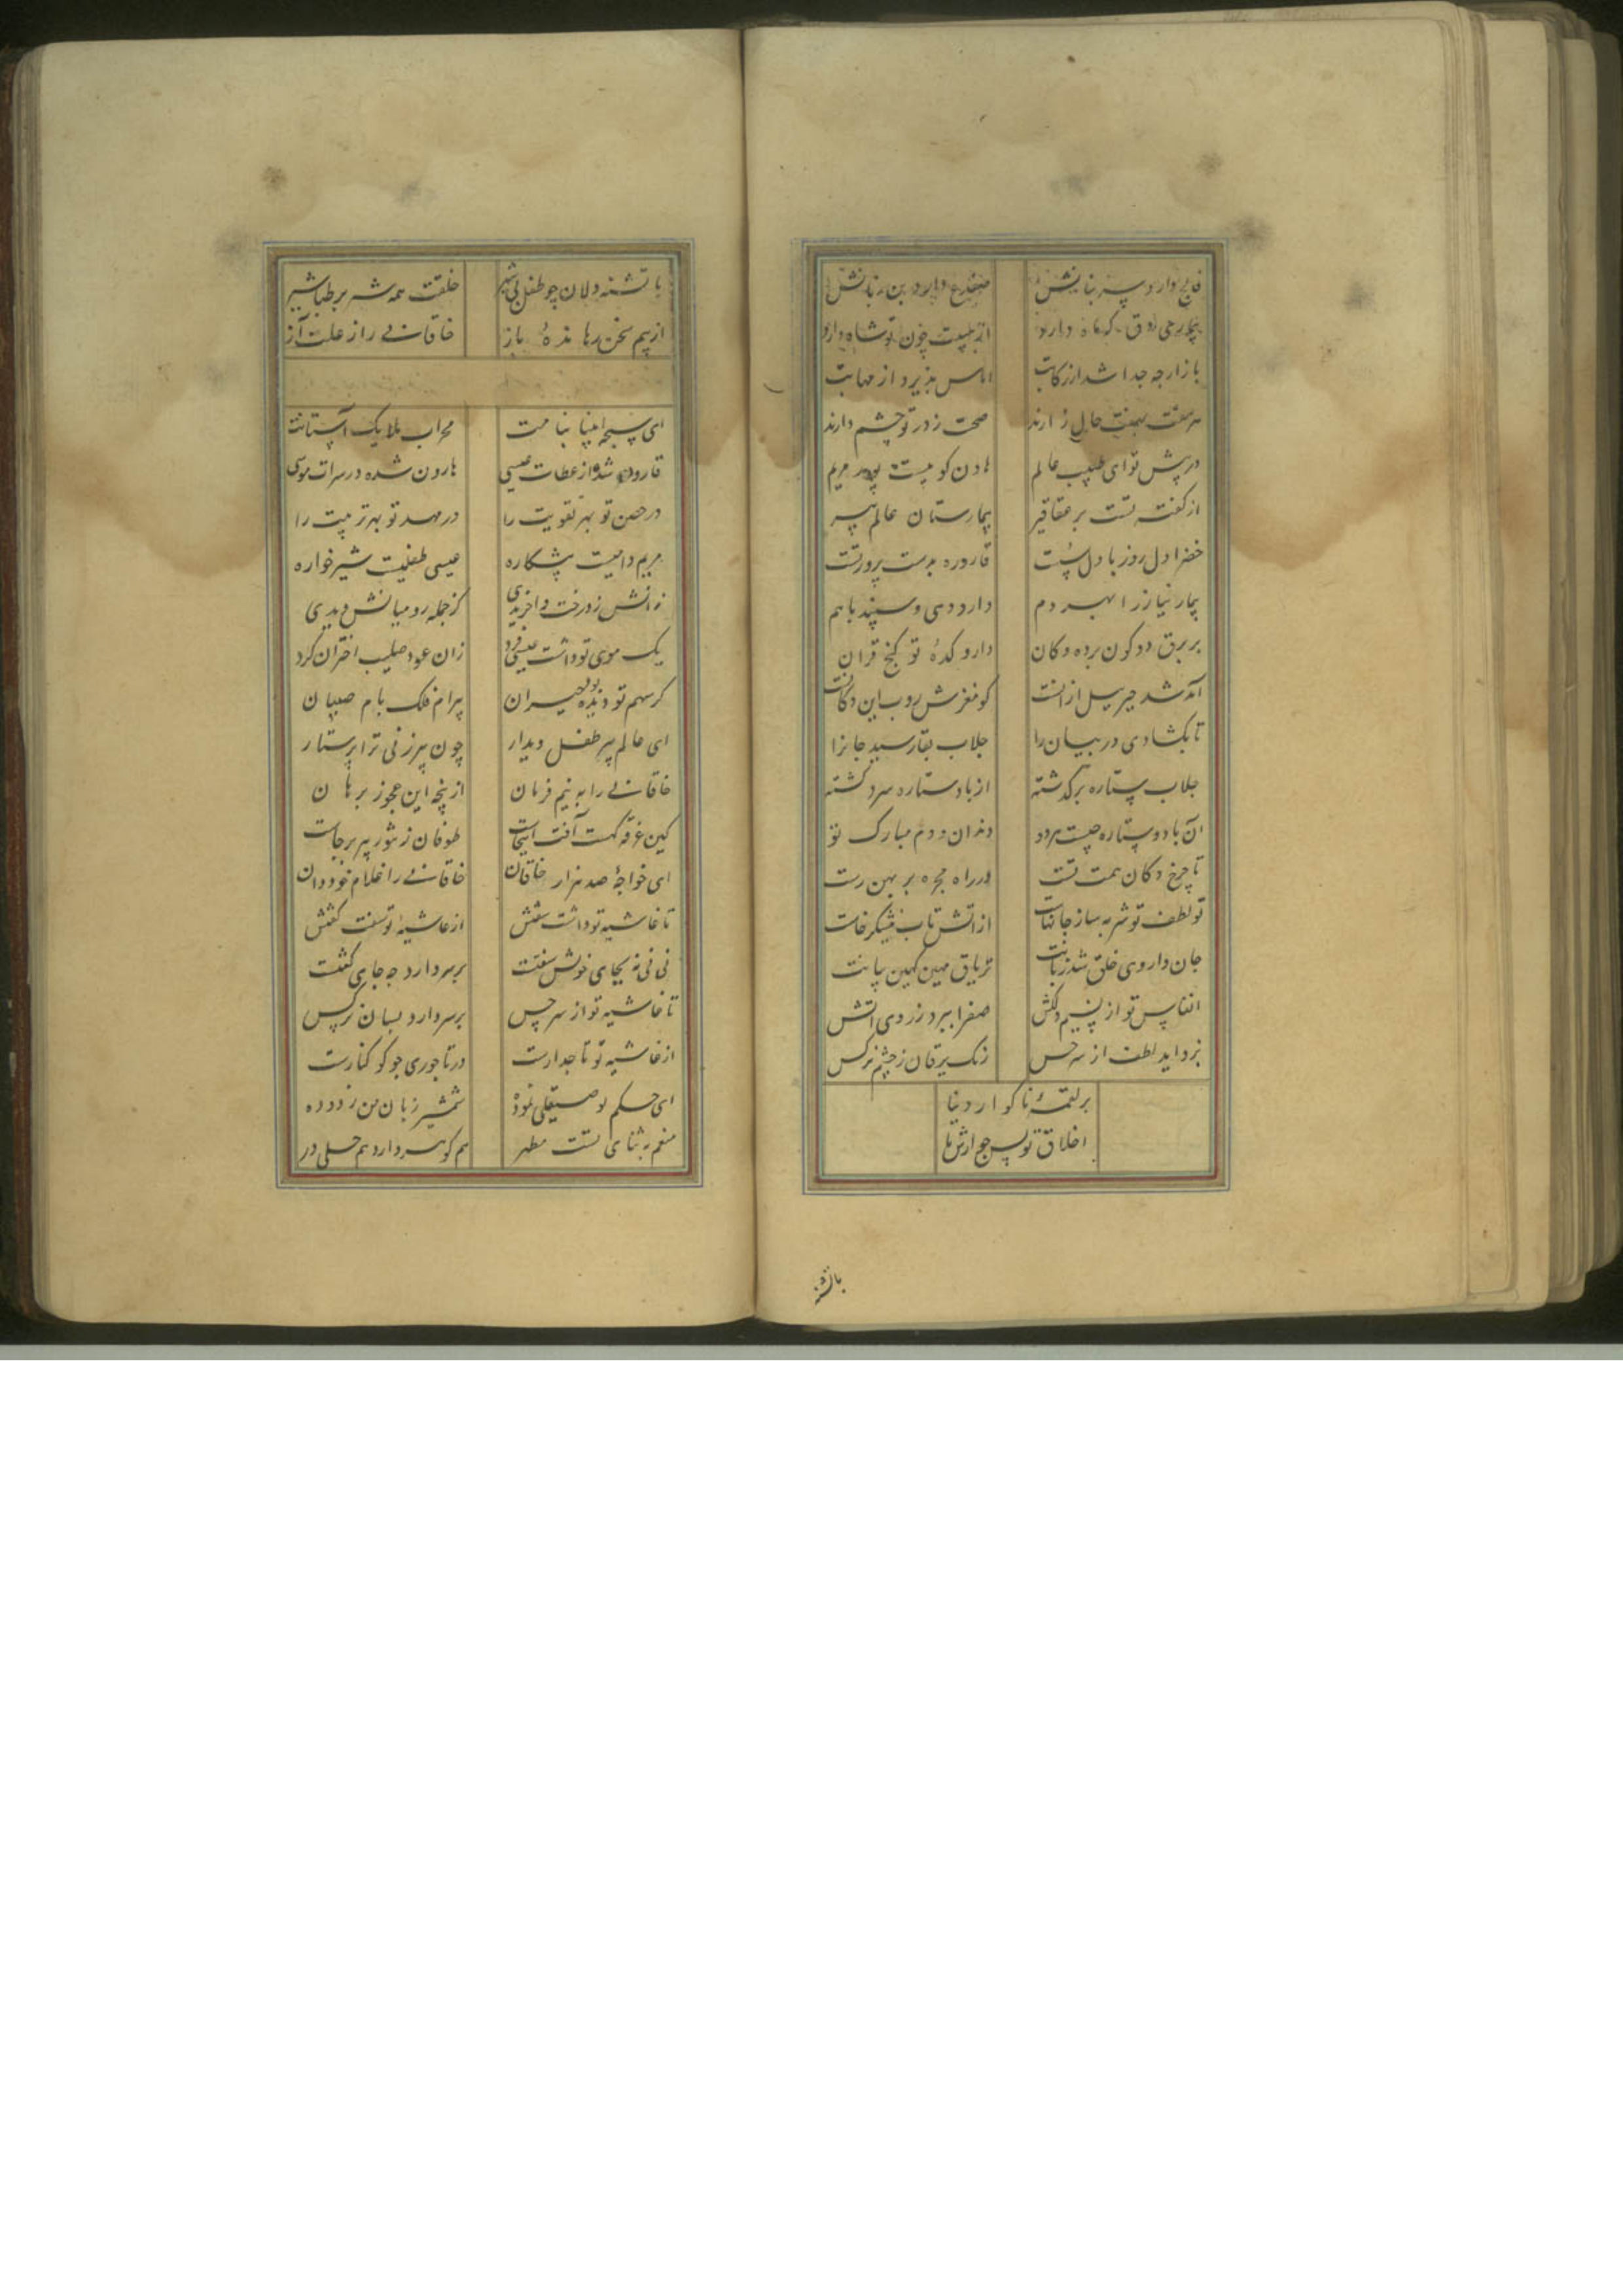 فالج دارد سر بنانش ضفدع دارد بن زبانش
دارد از هیبت چون تو شاه دارد
بازار چه جدا شد از رکابت اماس پذیرد از مهابت
هر هفت بهفت حال زارند صحت ز در تو چشم دارند
در پیش تو ای طبیب عالم هادن کوبیست پور مریم
از کفته تست بر عقاقیر بیمارستان عالم پیر
خضر اول روز با دل قاروره بدست بر درتست
بیمار نیاز را بهر دم دارد دمی و سپند با هم
بر برق دو کون برده دکان دارو کدهٔ تو کنج قران
آمد شد جبریل از انست کو مغزش روب این دکانست
تا بکشادی در بیان را جلاب بقا رسید جانرا
جلاب ستاره برکذشته از باد ستاره سرد کشته
آن باد و ستاره چیست هر دو دندان و دم مبارک تو
تا چرخ دکان همت تست در راه مجره بر بهن رست
تو لطف تو شربه ساز جانهاست از اتش تاب نیشکر خاست
جان داروی خلق شد زبانت تریاق مهین کهین بیانت
انفاس تو از نسیم دلکش صفرا ببرد ز روی اتش
بزداید لطف از سر حس زنک یرقان ز چشم نرکس
بر لقمهٔ ناکوار دنیا
اخلاق تو بس جوارش ما
باتشنه
با تشنه دلان چو طفل بی شیر خلقت همه شربر طباشیر
از بیم سخن رها ندهٔ باز خاقانی را از علت آز
ای سبحه انبیا بنامت محراب ملایک آستانت
قارون شده از عطات عیسی هارون شده در سرات موسی
در حصن تو بهر تقویت را در مهد تو بهر تربیت را
مریم دامیست پشکاره عیسی طفلیست شیرخواره
زانش ز درخت واخریدی کز جمله رومیانش دیدی
یک موی تو داشت عیسی فرد زان عود صلیب اختران کرد
کر سهم تو دیده بود حیران پیرام فلک بام صبیان
ای عالم پیر طفل دیدار چون پیرزنی ترا پرستار
خاقانی را به نیم فرمان از پنجه این عجوز برهان
کین غرقه کهست آفت اینجاست طوفان ز تنور پیر برخاست
ای خواجهٔ صد هزار خاقان خاقانی را غلام خود دان
تا غاشیه تو داشت سفتش از غاشیهٔ تو سفت کفتش
نی نی نه بجای خوش سفتست بر سر دارد چه جای کفتست
تا غاشیه تو از سر حس بر سر دارد بسان نرکس
از غاشیه تو تاجدارست در تاجوری چو کوکنارست
ای حکم تو صیقلی نموده شمشیر زبان من زدوده
منعم به ثنای تست مطهر هم کوهر دارد هم حلی در